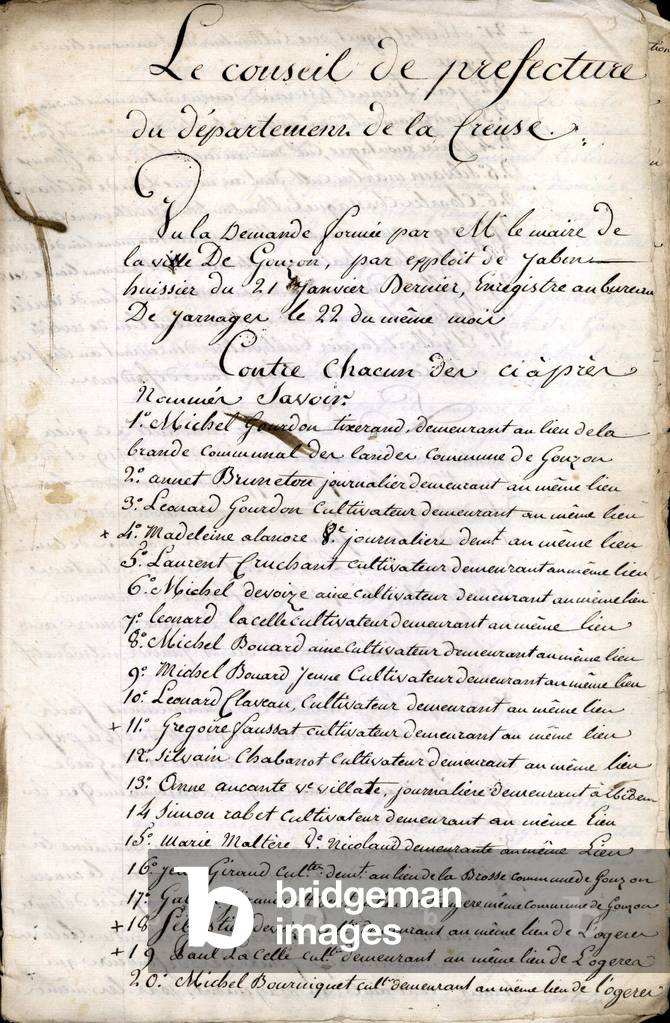 Le conseil de prefecture
du département de la Creuse.
Vu la Demande formée par Mr le maire de
la ville De Gouzon, par exploit de Jabin
huissier du 21 Janvier Dernier, Enregistre au bureau
De Jarnages le 22 du même mois
Contre chacun des ci après
Nommés Savoir.
1o. Michel Gourdon tixerand, demeurant au lieu de la
brande communal des landes commune de Gouzon
2o. annet Bruneton journalier demeurant au même lieu
3o. Leonard Gourdon cultivateur demeurant au même lieu
x 4o. Madeleine alanore journaliere demt au même lieu
5o. Laurent Cruchant cultivateur demeurant au même lieu
6o. Michel devoize ainé cultivateur demeurant au même lieu
7o. leonard lacelle cultivateur demeurant au même lieu
8o. Michel Bouard ainé cultivateur demeurant au même lieu
9o. Michel Bouard Jeune Cultivateur demeurant au même lieu
10o. Leonard Claveau, cultivateur demeurant au même lieu
+ 11o. Gregoire faussat cultivateur demeurant au même lieu
12o. Silvain Chabanot cultivateur demeurant au même lieu
13o. Anne aucante ve villate, journaliere demeurant
14 Simon rabet cultivateur demeurant au même lieu
15o. Marie Maltère Nicolaud demeurante au même Lieu
16o. Giraud demt au lieu de la Brosse commune de Gouzon
17o. même commune de Gouzon
+ 18 demeurant au même lieu de L'ogeres
+ 19 Paul La Celle cultr demeurant au même lieu de L'ogeres
20o. Michel Bourniquet cultr demeurant au même lieu de l'ogeres
bridgeman
images
b